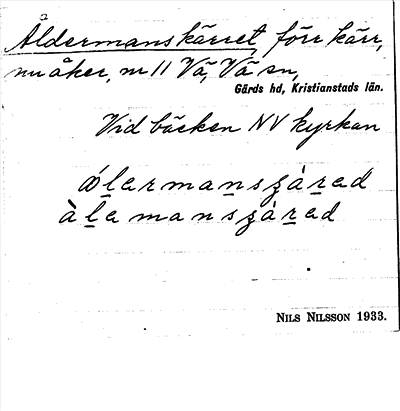 Åldermanskärret, förr kärr,
nu åker, m 11 Vä, Vä sn,
Gärds hd, Kristianstads län.
Vid bäcken NV kyrkan
Nils Nilsson 1933.